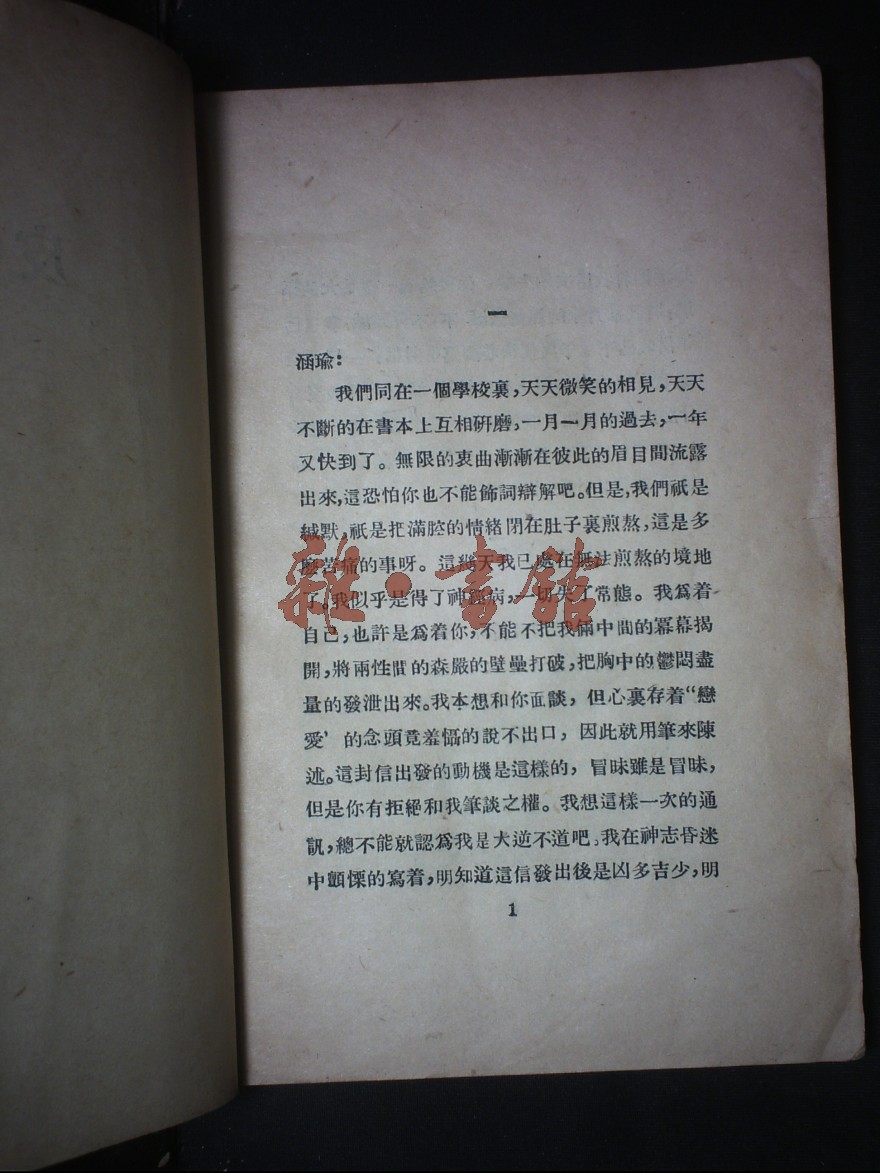 一
涵瑜：
我們同在一個學校裏，天天微笑的相見，天天
不斷的在書本上互相研磨，一月一月的過去，一年
又快到了。無限的衷曲漸漸在彼此的眉目間流露
出來，這恐怕你也不能飾詞辯解吧。但是，我們祇是
緘默，祇是把滿腔的情緒閉在肚子裏煎熬，這是多
麼苦痛的事呀。這幾天我已處在無法煎熬的境地
了。我似乎是得了神經病，一切失了常態。我爲着
自己，也許是爲着你，不能不把我倆中間的冪幕揭
開，將兩性間的森嚴的壁壘打破，把胸中的鬱悶盡
量的發泄出來。我本想和你面談，但心裏存着“戀
愛’的念頭竟羞懾的說不出口，因此就用筆來陳
述。這封信出發的動機是這樣的，冒昧雖是冒昧，
但是你有拒絕和我筆談之權。我想這樣一次的通
訊，總不能就認爲我是大逆不道吧。我在神志昏迷
中顫慄的寫着，明知道這信發出後是凶多吉少，明
1
雜·書館